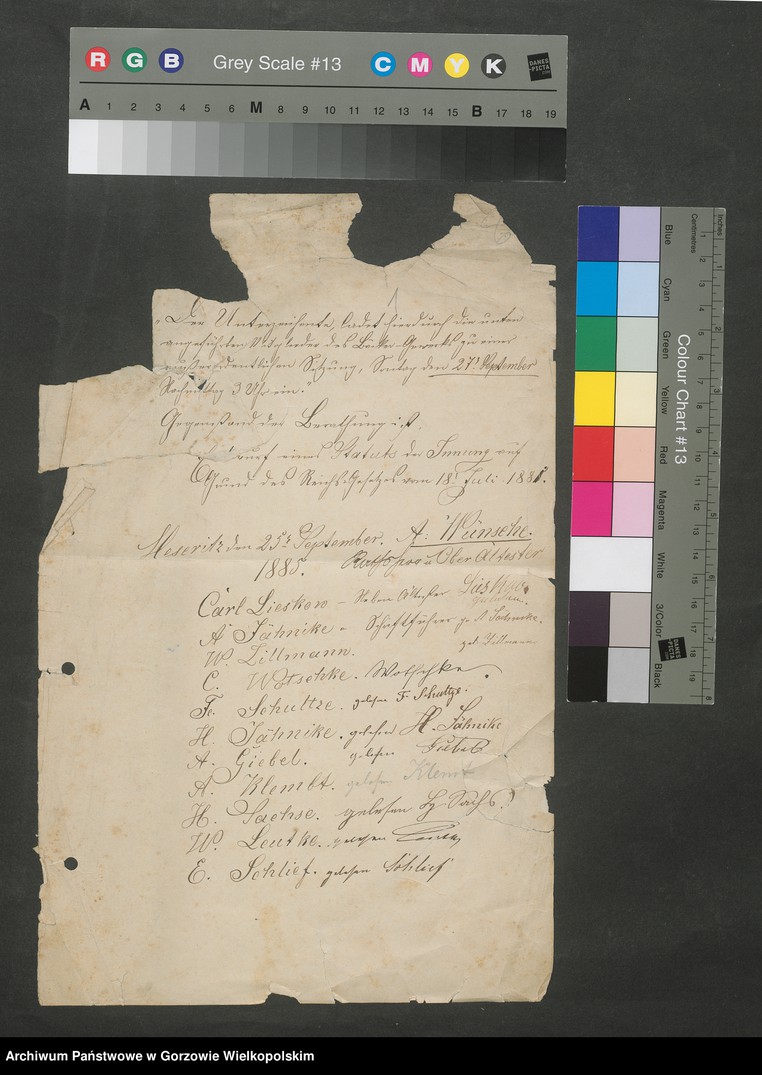 R G B Grey Scale #13 C M Y K DANES PICTA .COM
A 1 2 3 4 5 6 M 8 9 10 11 12 13 14 15 B 17 18 19
1
Der Unterzeichnete ladet hierdurch die unten
angeführten Mitglieder des Gewerks zu einer
außerordentlichen Sitzung, Sontag den 27t September
Nachmittag 3 Uhr ein.
Gegenstand der Berathung ist.
eines Statuts der Innung auf
Grund des Reichs-Gesetzes vom 18t Juli 1881.
Meseritz den 25t September. A: Wünsche.
1885. Ober Altester
Carl Lieskow – Neben Altester Lieskow
gelesen.
A Jähnike – Schriftführer A Jähnike.
W. Zillmann. Zillmann
C. Wotschke. Wotschke
Fr. Schultze. gelesen F. Schultze.
H. Jähnike. gelesen H. Jähnike
A. Giebel. gelesen Giebel
A. Klembt. gelesen Klemt
H. Sachse. gelesen H Sachs.
W. Leutke. gelesen
E. Schlief. gelesen Schlief
Colour Chart #13
Blue Cyan Green Yellow Red Magenta White 3/Color Black
Centimetres 1 2 3 4 5 6 7 8 9 10 11 12 13 14 15 16 17 18 19
Inches 1 2 3 4 5 6 7 8
DANES PICTA .COM
Archiwum Państwowe w Gorzowie Wielkopolskim